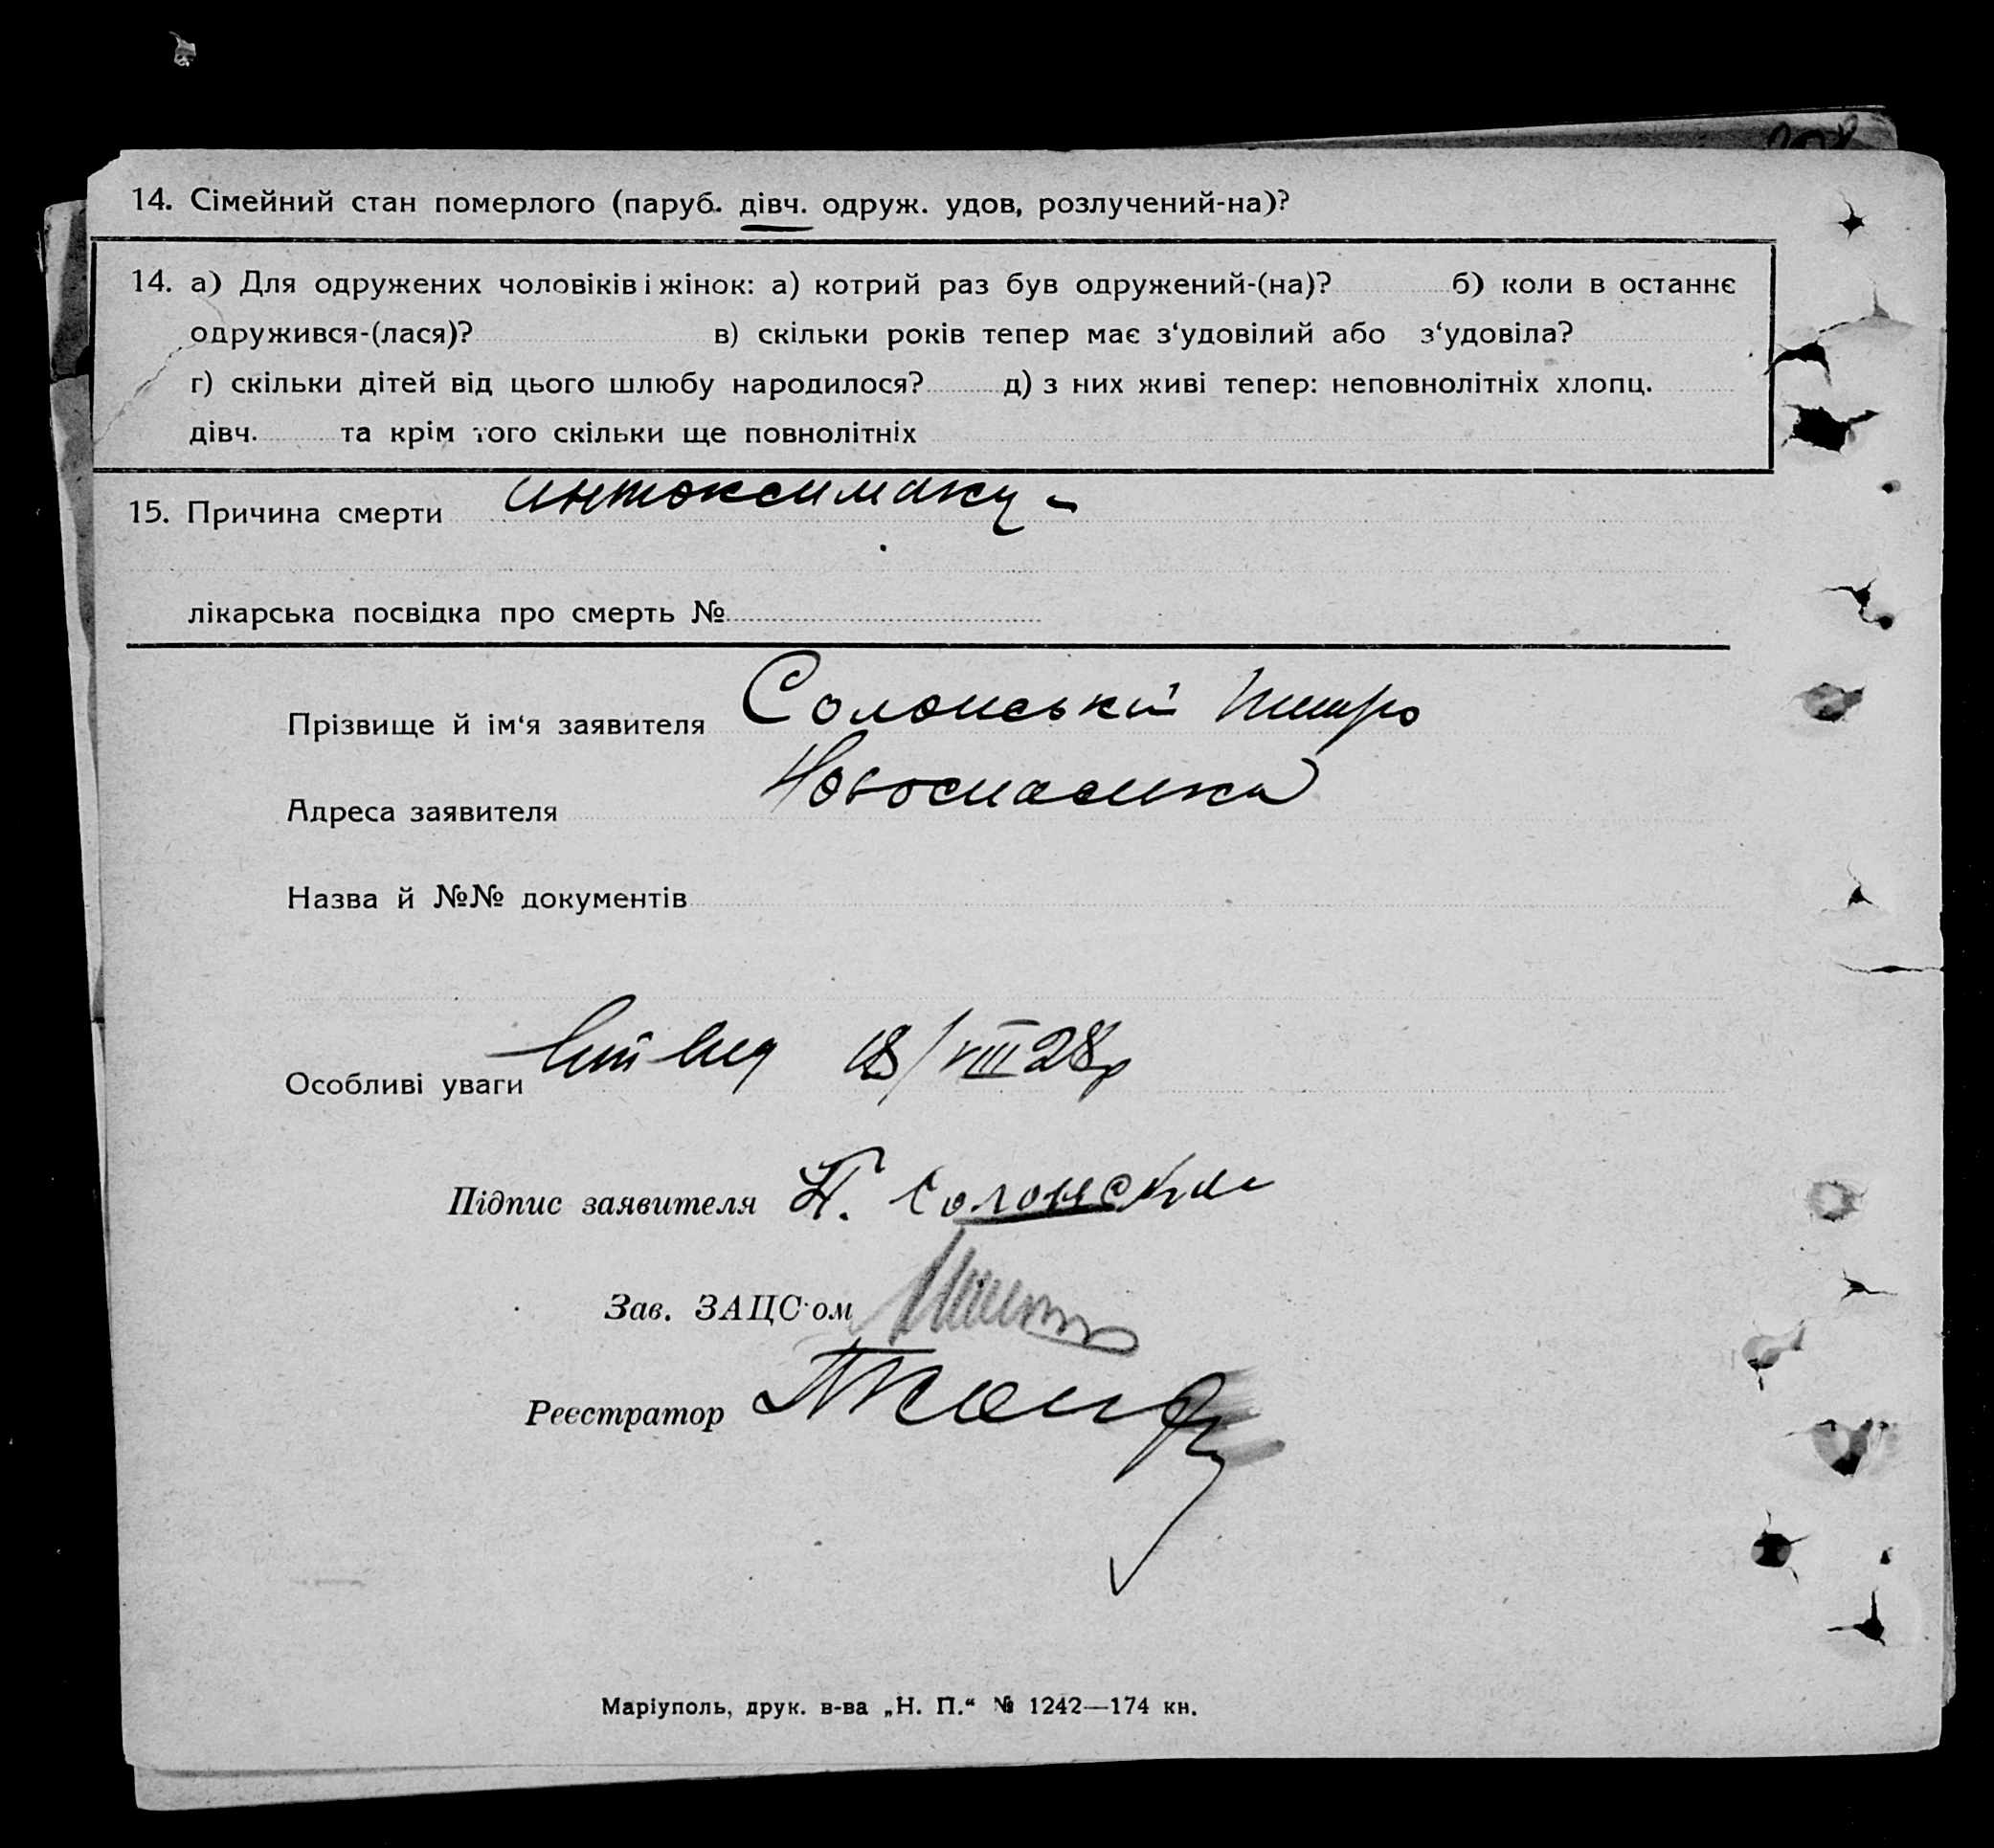 14. Сімейний стан померлого (паруб. дівч. одруж. удов, розлучений-на)?
14. а) Для одружених чоловіків і жінок: а) котрий раз був одружений-(на)? б) коли в останнє
одружився-(лася)? в) скільки років тепер має з‘удовілий або з‘удовіла?
г) скільки дітей від цього шлюбу народилося? д) з них живі тепер: неповнолітніх хлопц.
дівч. та крім того скільки ще повнолітніх
15. Причина смерти
лікарська посвідка про смерть №
Прізвище й ім‘я заявителя Солонський Петро
Адреса заявителя Новоспасівка
Назва й №№ документів
Особливі уваги 18/VIII 28р
Підпис заявителя П. Солонский
Зав. ЗАЦС‘ом
Реєстратор
Маріуполь, друк. в-ва „Н. П.“ № 1242—174 кн.